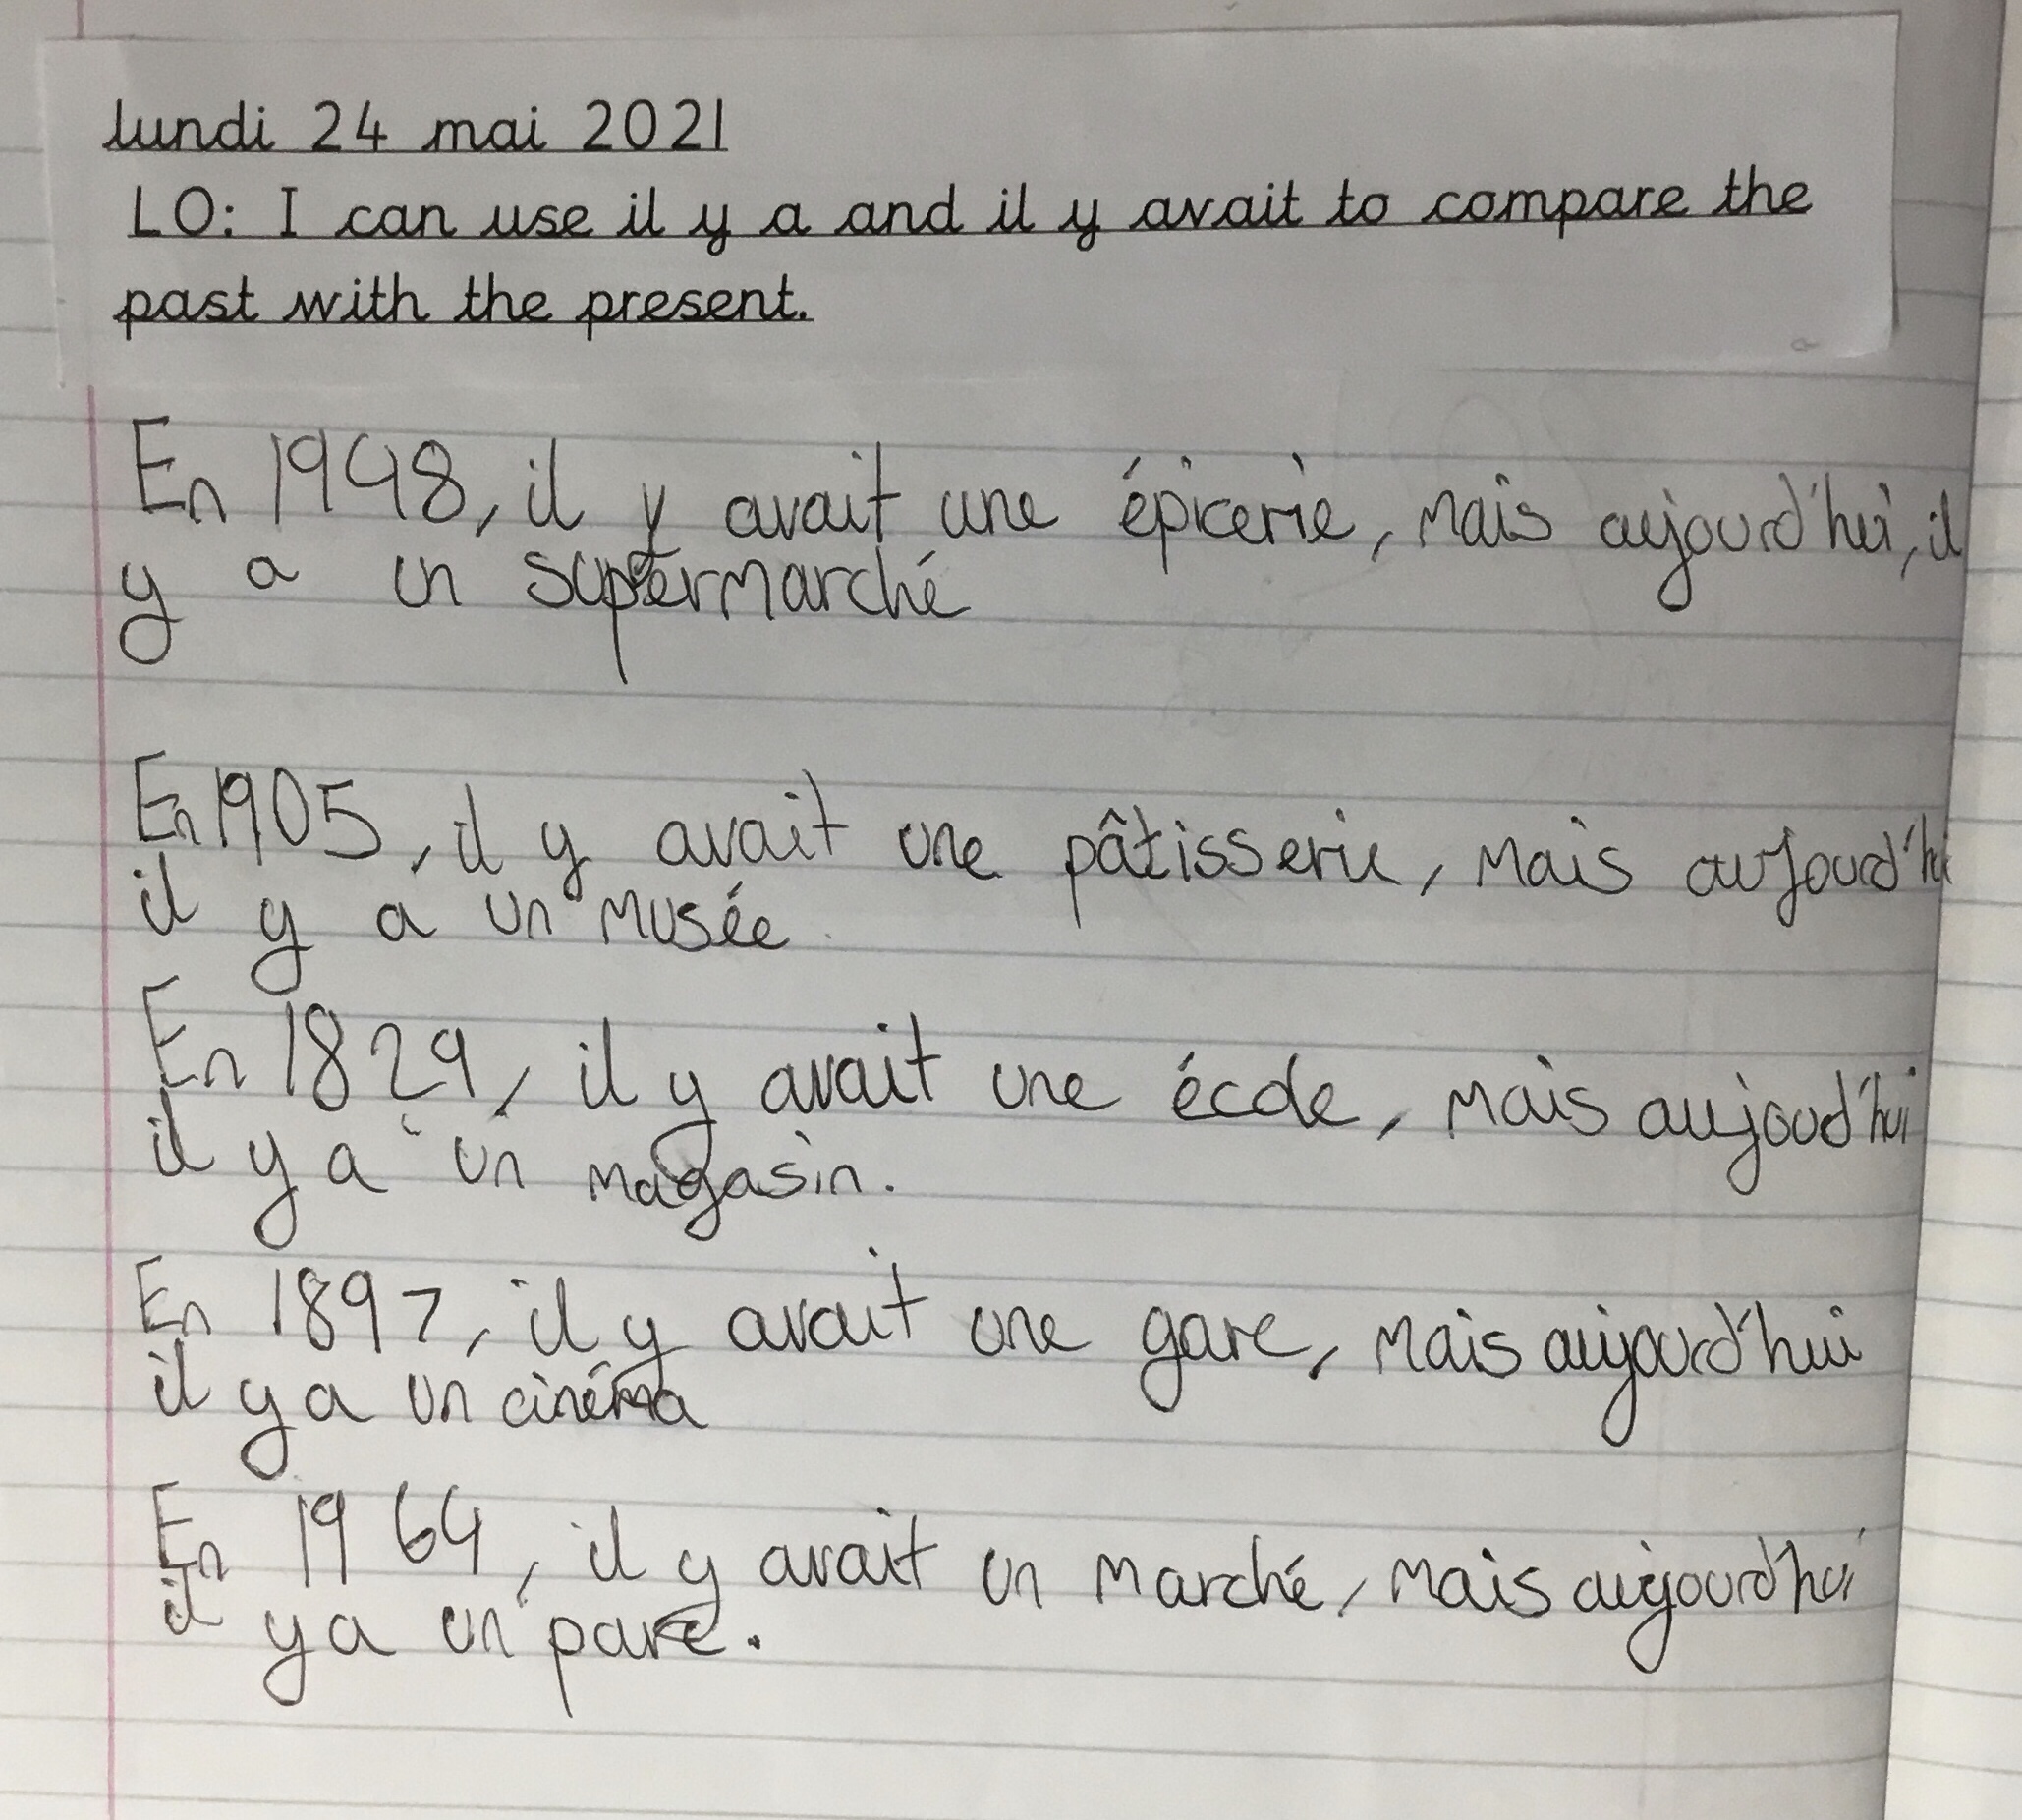 lundi 24 mai 2021
LO: I can use il y a and il y avait to compare the
past with the present.
En 1948, il y avait une épicerie, mais aujourd'hui, il
y a un supermarché
En 1905, il y avait une pâtisserie, mais aujourd'hui
il y a un musée
En 1829, il y avait une école, mais aujood'hui
il y a un magasin.
En 1897, il y avait une gare, mais aujourd'hui
il y a un cinéma
En 1964, il y avait un marché, mais aujourd'hui
il y a un parc.